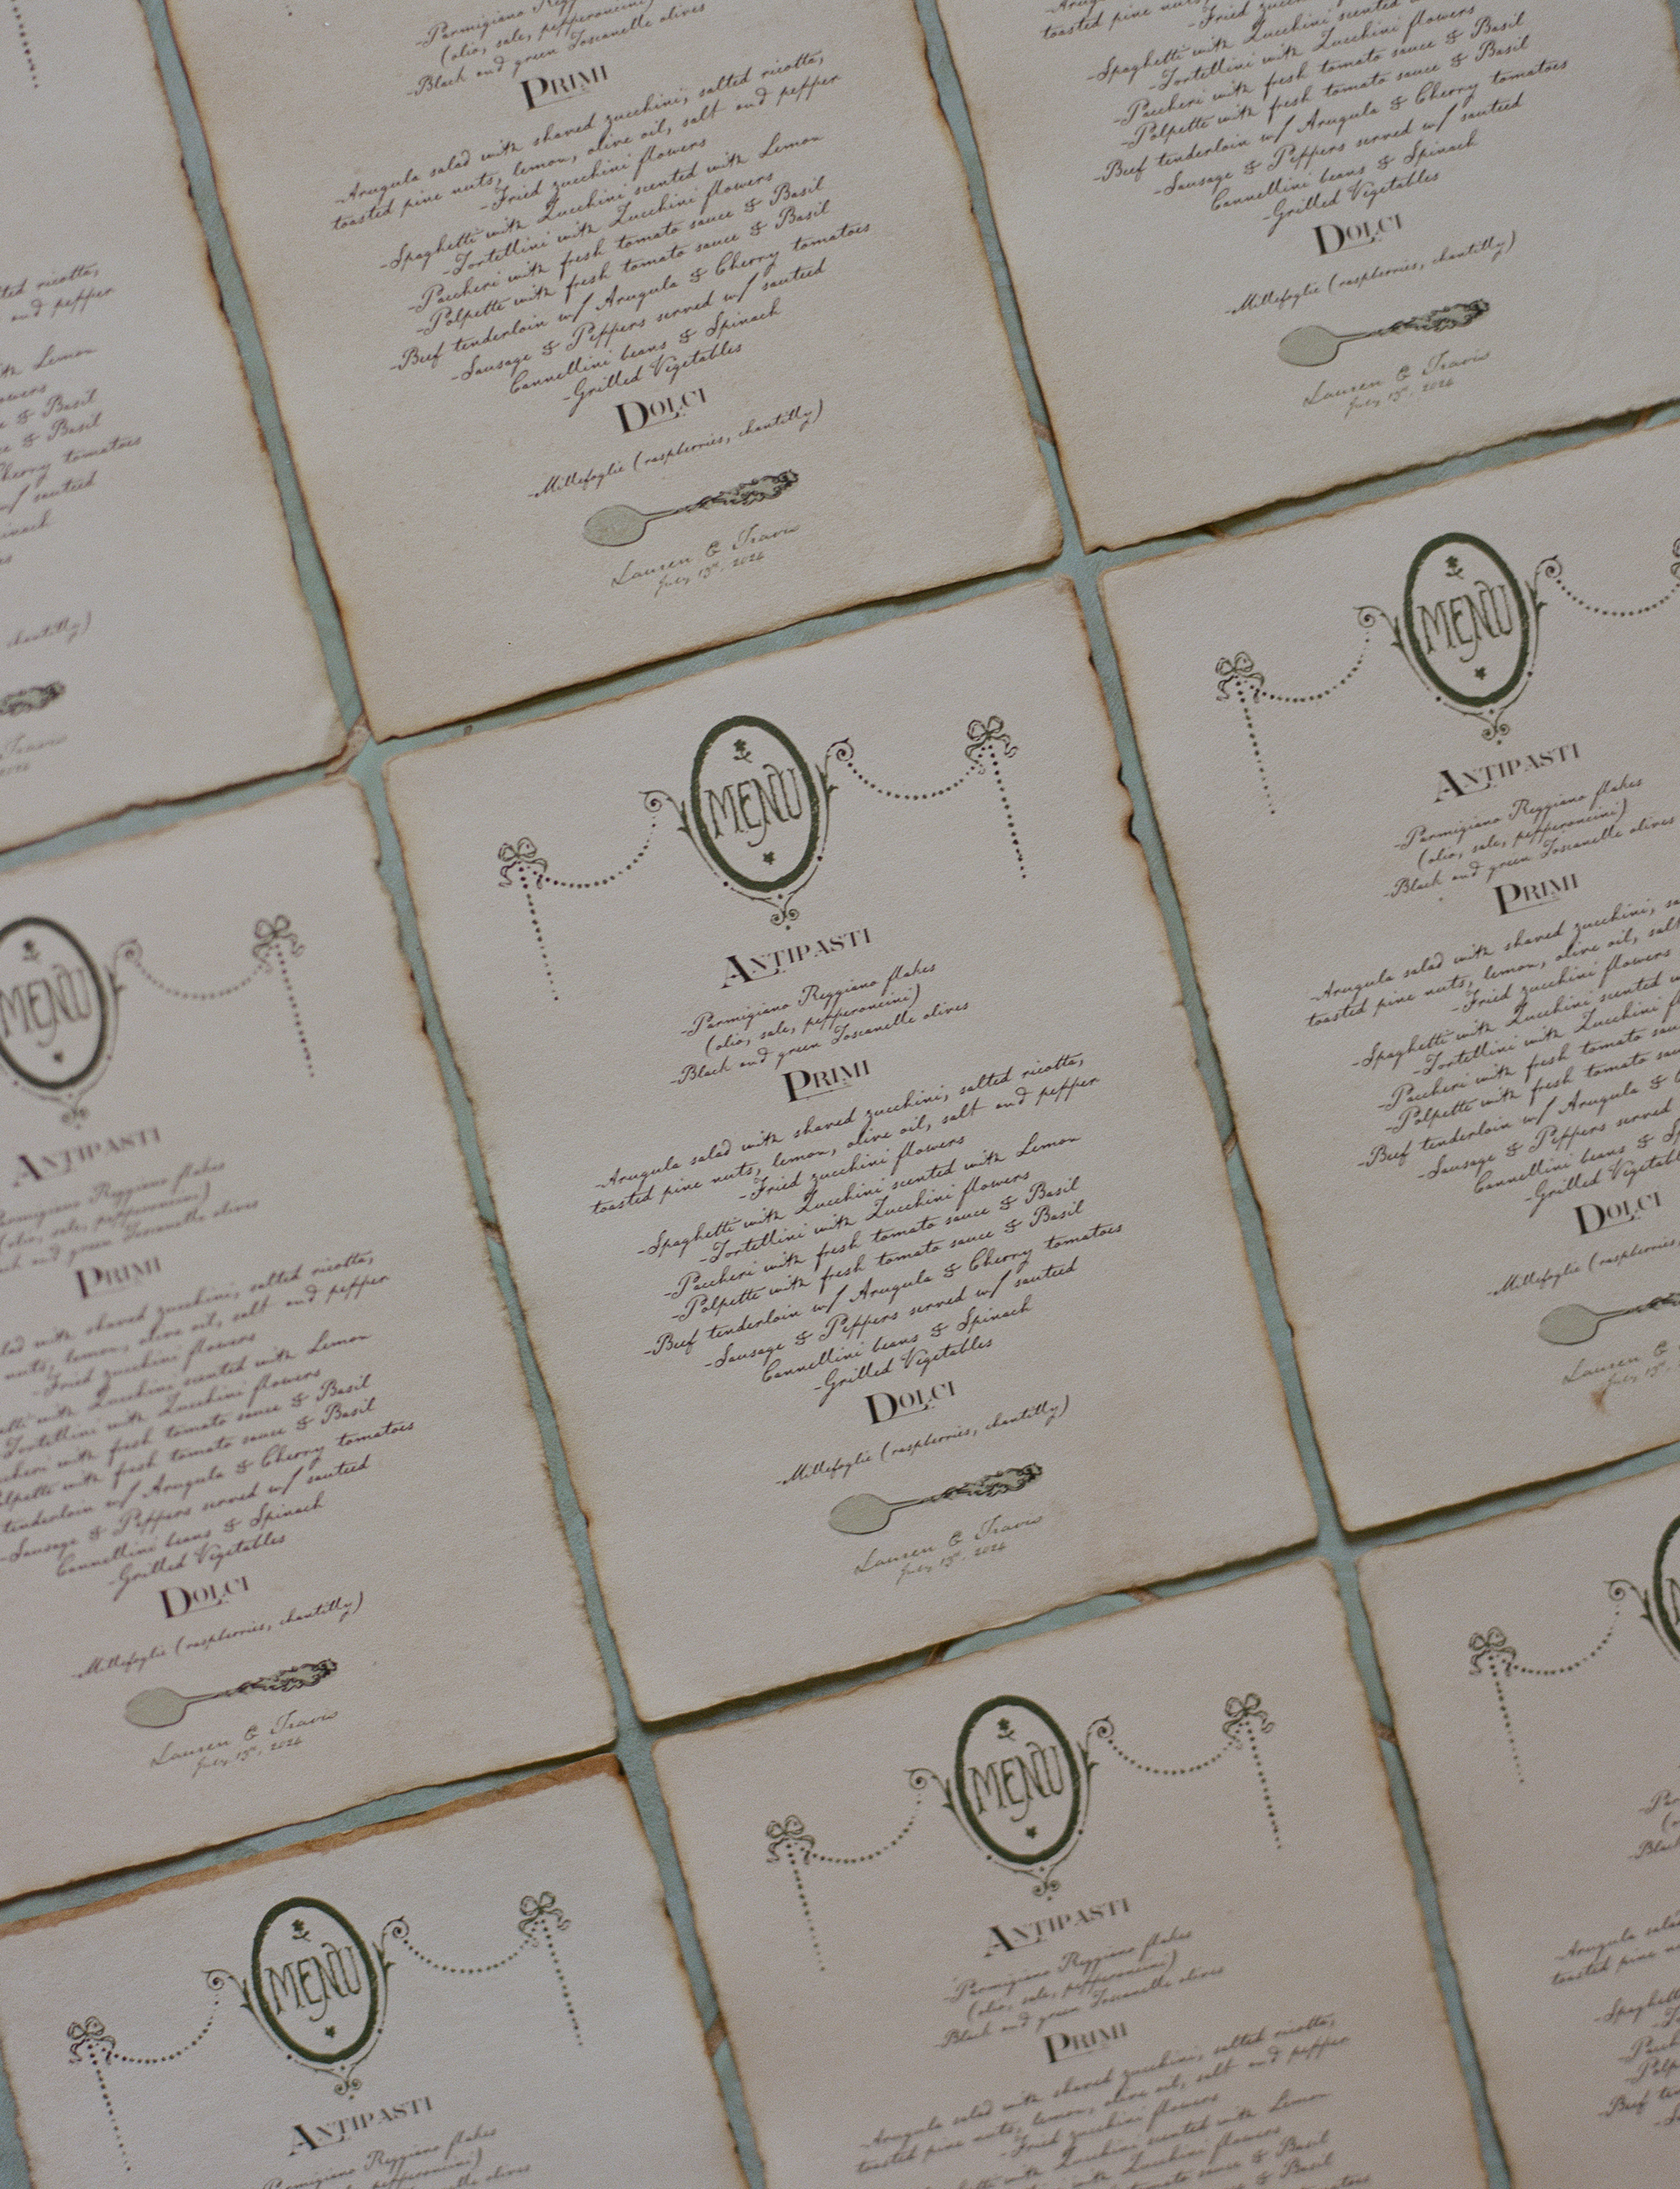 MENU
ANTIPASTI
-Parmigiano Reggiano flakes
(olio, sale, pepperoncini)
-Black and green Toscanelle olives
PRIMI
-Arugula salad with shaved zucchini, salted ricotta,
toasted pine nuts, lemon, olive oil, salt and pepper
-Fried zucchini flowers
-Spaghetti with Zucchini scented with Lemon
-Tortellini with Zucchini flowers
-Paccheri with fresh tomato sauce & Basil
-Polpette with fresh tomato sauce & Basil
-Beef tenderloin w/ Arugula & Cherry tomatoes
-Sausage & Peppers served w/ sauteed
Cannellini beans & Spinach
-Grilled Vegetables
DOLCI
-Millefoglie (raspberries, chantilly)
Lauren & Travis
July 13th, 2024